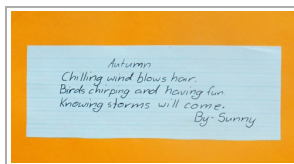 Autumn
Chilling wind blows hair.
Birds chirping and having fun
Knowing storms will come.
By-Sunny